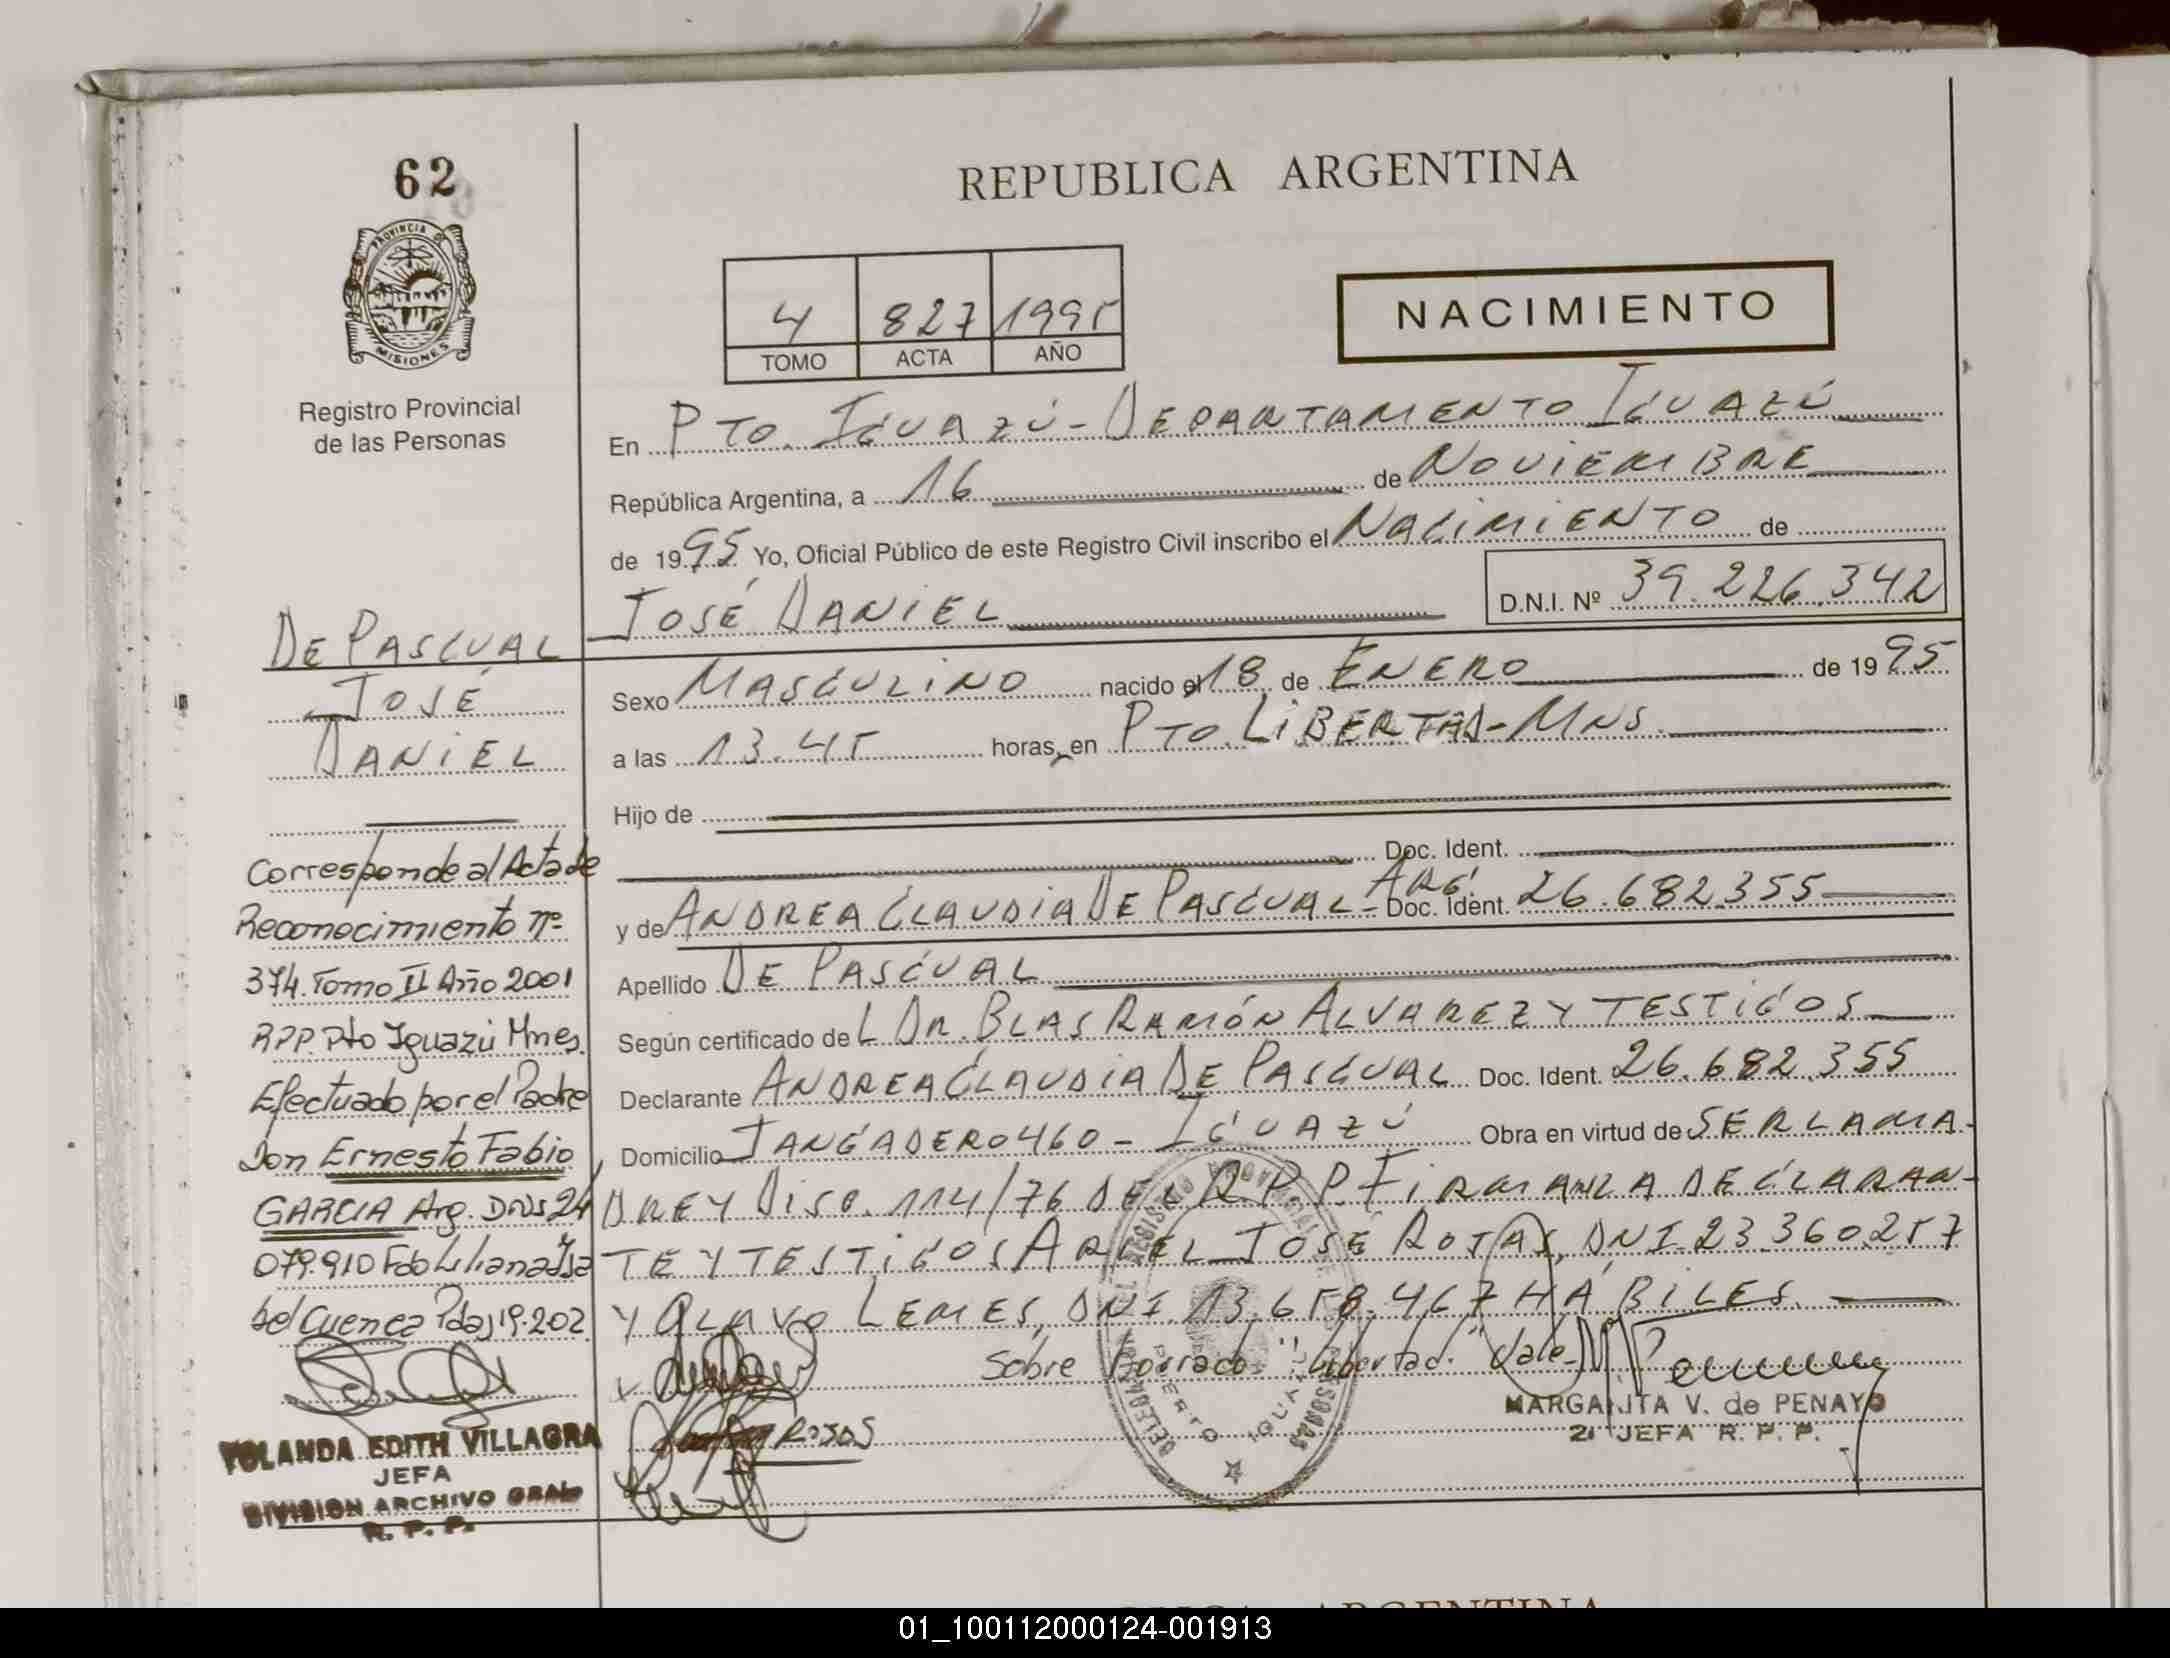 62
PROVINCIA DE
MISIONES
Registro Provincial
de las Personas
REPUBLICA ARGENTINA
4 827 1995
TOMO ACTA AÑO
NACIMIENTO
En PTO. IGUAZÚ - DEPARTAMENTO IGUAZÚ
República Argentina, a 16 de NOVIEMBRE
de 1995 Yo, Oficial Público de este Registro Civil inscribo el NACIMIENTO de
JOSÉ DANIEL D.N.I. Nº 39.226.342
Sexo MASCULINO nacido el 18 de ENERO de 1995
a las 13.45 horas, en PTO. LIBERTAD - MNS.
Hijo de
Doc. Ident.
y de ANDREA CLAUDIA DE PASCUAL - ARG. Doc. Ident. 26.682.355
Apellido DE PASCUAL
Según certificado de L DR. BLAS RAMÓN ALVAREZ Y TESTIGOS
Declarante ANDREA CLAUDIA DE PASCUAL Doc. Ident. 26.682.355
Domicilio TANGADERO 460 - IGUAZÚ Obra en virtud de SER LA MA-
DRE Y DISP. 114/76 DEL R.P.P. FIRMAN LA DECLARAN-
TE Y TESTIGOS ARIEL JOSÉ ROJAS, DNI 23.360.257
Y OLAVO LEMES, DNI 13.658.467 HÁBILES.
Sobre borrado: "Libertad" Vale.
ROJAS
MARGARITA V. de PENAYO
2ª JEFA R. P. P.
DELEGACION DEL REGISTRO PROVINCIAL DE LAS PERSONAS
PUERTO IGUAZU
DE PASCUAL
JOSÉ
DANIEL
Corresponde al Acta de
Reconocimiento nº
374. Tomo II Año 2001
RPP. Pto Iguazú Mnes.
Efectuado por el Padre
Don Ernesto Fabio
GARCIA Arg. DNI 24
079.910 Fdo Liliana Ysa
bel Cuenca Pdas 19-202
YOLANDA EDITH VILLAGRA
JEFA
DIVISION ARCHIVO GRAL
R. P. P.
01_100112000124-001913